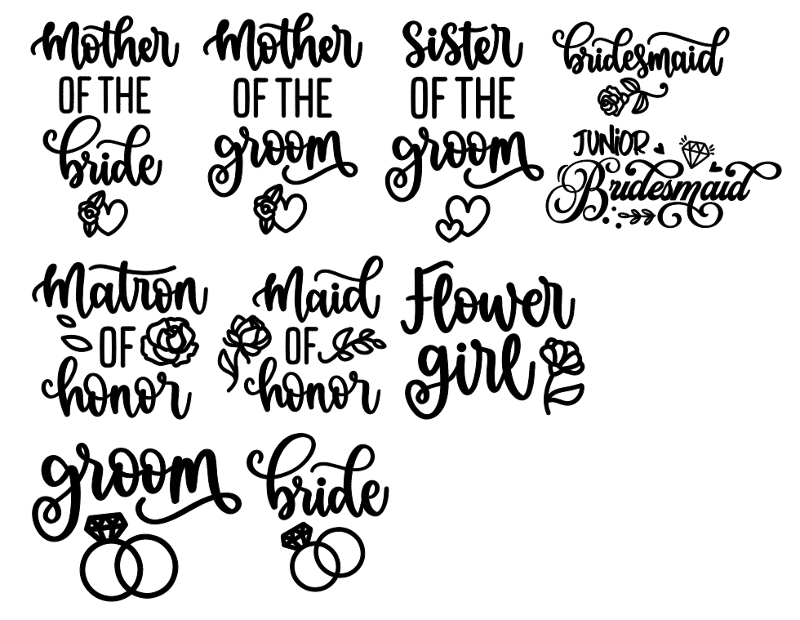 Mother
OF THE
bride
Mother
OF THE
groom
Sister
OF THE
groom
bridesmaid
JUNiOR
Bridesmaid
Matron
OF
honor
Maid
OF
honor
Flower
girl
groom
bride